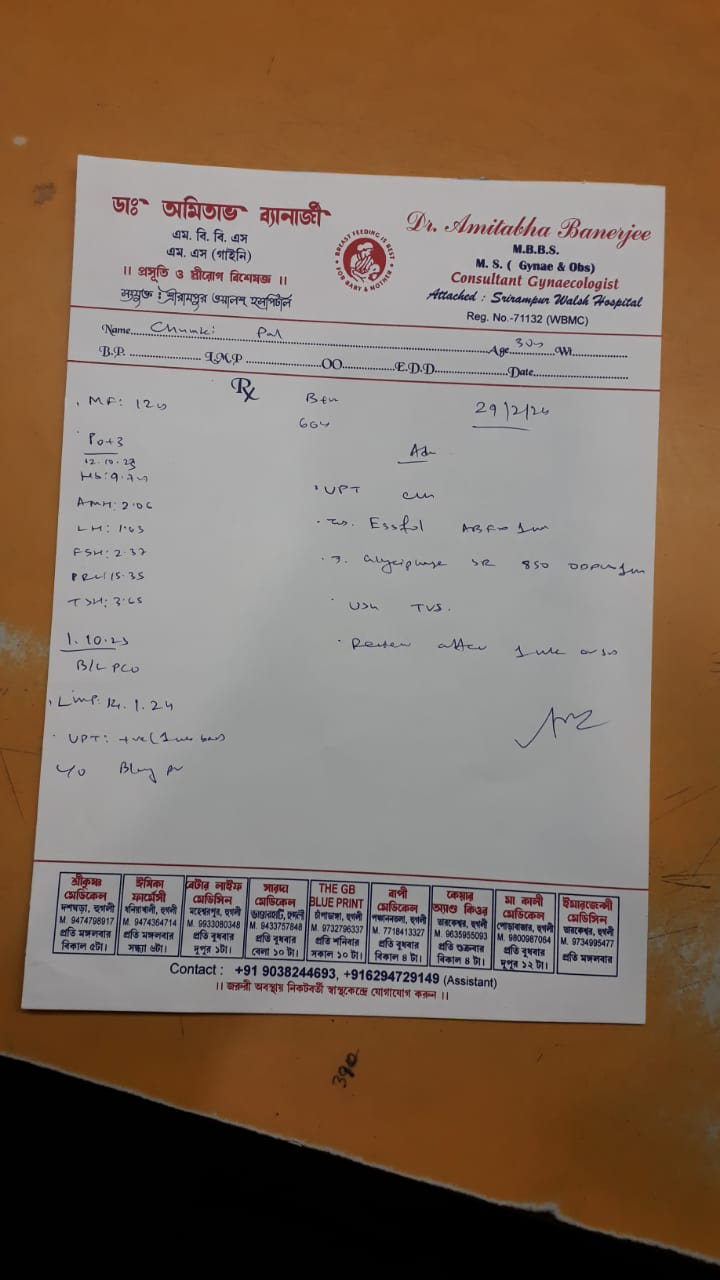 ডাঃ অমিতাভ ব্যানার্জী
এম. বি. বি. এস
এম. এস (গাইনি)
।। প্রসূতি ও স্ত্রীরোগ বিশেষজ্ঞ ।।
সংযুক্ত : শ্রীরামপুর ওয়ালশ হসপিটাল
BREAST FEEDING IS BEST
FOR BABY & MOTHER
Dr. Amitabha Banerjee
M.B.B.S.
M. S. ( Gynae & Obs)
Consultant Gynaecologist
Attached : Srirampur Walsh Hospital
Reg. No.-71132 (WBMC)
Name Chumki Pal Age 30y Wt
B.P. L.M.P OO E.D.D Date
Rx
29/2/24
MF: 12y
P0+3
12.10.23
Hb: 9.7
AMH: 2.06
LH: 1.63
FSH: 2.37
PRL: 15.35
TSH: 3.65
1.10.23
B/L PCO
LMP: 14.1.24
UPT: +ve (1
Adv
UPT
Essfol 1m
T. Glyciphage SR 850 1m
USG TVS.
Review after 1 wk or sos
শ্রীকৃষ্ণ মেডিকেল
দশঘড়া, হুগলী
M. 9474798917
প্রতি মঙ্গলবার
বিকাল ৫টা।
ঈশিকা ফার্মেসী
ধনিয়াখালী, হুগলী
M. 9474364714
প্রতি মঙ্গলবার
সন্ধ্যা ৬টা।
বেটার লাইফ মেডিসিন
মহেশ্বরপুর, হুগলী
M. 9933080348
প্রতি বুধবার
দুপুর ১টা।
সারদা মেডিকেল
হুগলী
M. 9433757848
প্রতি বুধবার
বেলা ১০টা।
THE GB BLUE PRINT
চাঁপাডাঙ্গা, হুগলী
M. 9732796337
প্রতি শনিবার
সকাল ১০ টা।
বাপী মেডিকেল
হুগলী
M. 7718413327
প্রতি বুধবার
বিকাল ৪ টা।
কেয়ার অ্যাণ্ড কিওর
তারকেশ্বর, হুগলী
M. 9635955093
প্রতি শুক্রবার
বিকাল ৪ টা।
মা কালী মেডিকেল
পোড়াবাজার, হুগলী
M. 9800987064
প্রতি বুধবার
দুপুর ১২ টা।
ইমারজেন্সী মেডিসিন
তারকেশ্বর, হুগলী
M. 9734995477
প্রতি মঙ্গলবার
Contact : +91 9038244693, +916294729149 (Assistant)
।। জরুরী অবস্থায় নিকটবর্তী স্বাস্থ্যকেন্দ্রে যোগাযোগ করুন ।।
390